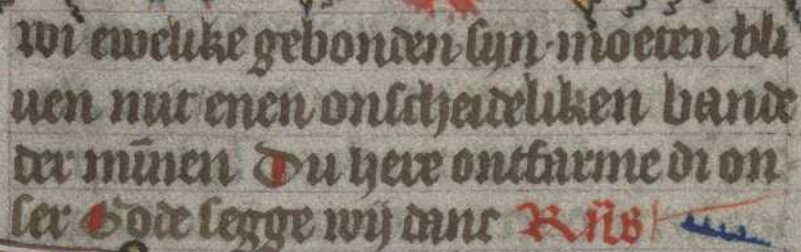 wi ewelike gebonden sijn moeten bli
uen mit enen onscheideliken bande
der mīnen Du here ontfarme di on
ser Gode segge wij danc R̄ns